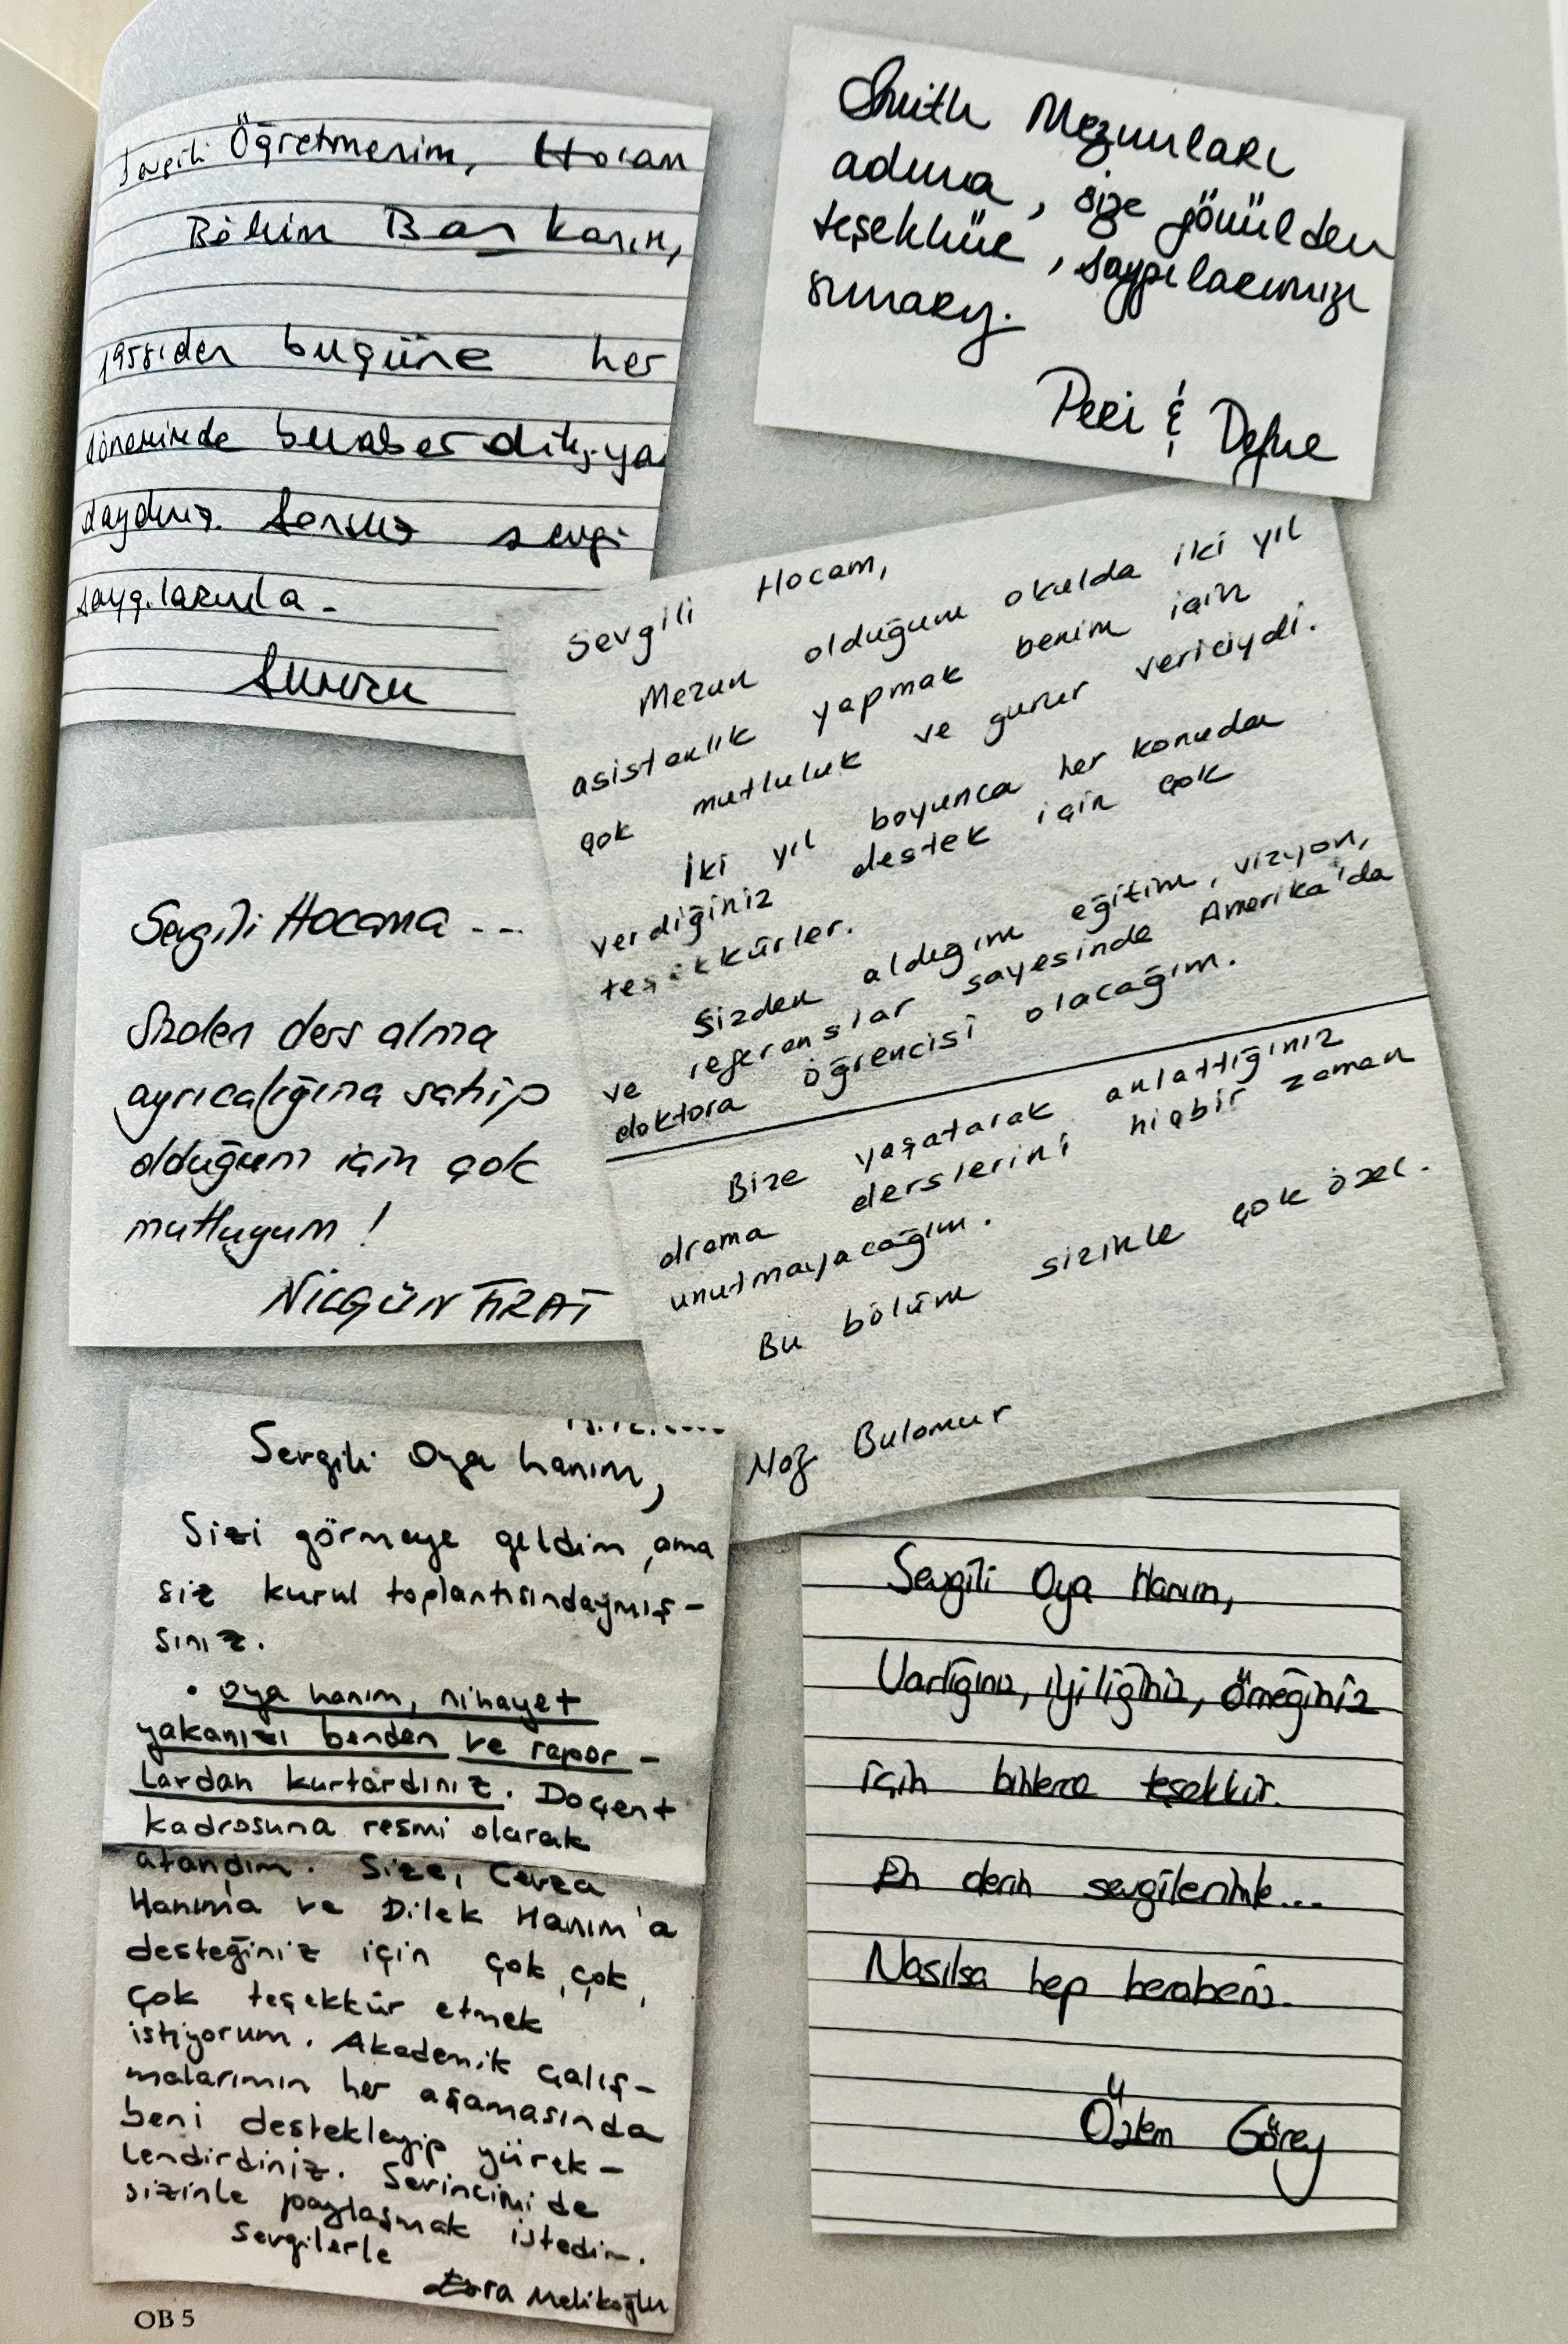 Sevgili Öğretmenim, Hocam
Bölüm Başkanım,
1958'den bugüne her
döneminde beraberdik,
Sonsuz sevgi
saygılarımla.
Smith Mezunları
adına, size gönülden
teşekkür, saygılarımızı
sunarız.
Peri & Defne
Sevgili Hocam,
Mezun olduğum okulda iki yıl
asistanlık yapmak benim için
çok mutluluk ve gurur vericiydi.
İki yıl boyunca her konuda
verdiğiniz destek için çok
teşekkürler.
Sizden aldığım eğitim, vizyon,
ve referanslar sayesinde Amerika'da
doktora öğrencisi olacağım.
Bize yaşatarak anlattığınız
drama derslerini hiçbir zaman
unutmayacağım.
Bu bölüm sizinle çok özel.
Naz Bulamur
Sevgili Hocama...
Sizden ders alma
ayrıcalığına sahip
olduğum için çok
mutluyum!
NİLGÜN FIRAT
Sevgili Oya hanım,
Sizi görmeye geldim, ama
siz kurul toplantısındaymış-
sınız.
• Oya hanım, nihayet
yakanızı benden ve rapor-
lardan kurtardınız. Doçent
kadrosuna resmi olarak
atandım. Size, Cevza
Hanım'a ve Dilek Hanım'a
desteğiniz için çok, çok,
çok teşekkür etmek
istiyorum. Akademik çalış-
malarımın her aşamasında
beni destekleyip yürek-
lendirdiniz. Sevincimi de
sizinle paylaşmak istedim.
Sevgilerle
Esra Melikoğlu
Sevgili Oya Hanım,
Varlığınız, iyiliğiniz, örneğiniz
için binlerce teşekkür.
En derin sevgilerimle...
Nasılsa hep beraberiz.
Özlem Görey
OB 5